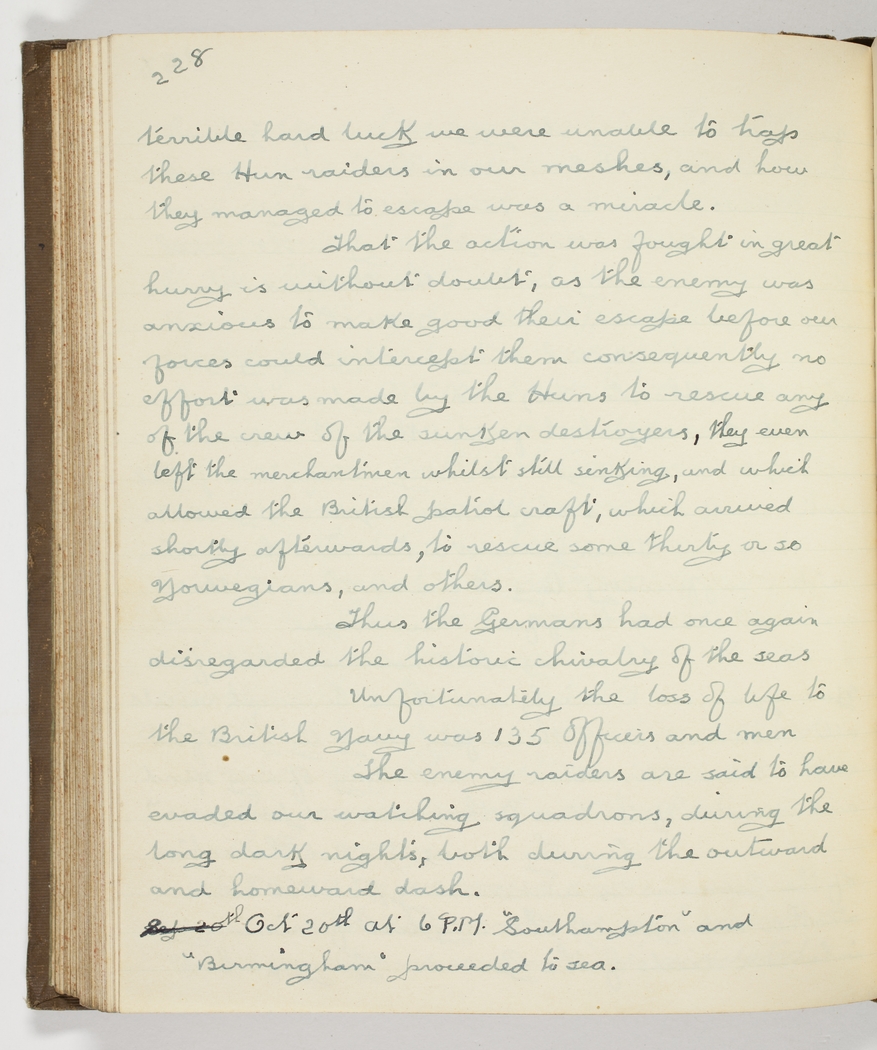 228
terrible hard luck we were unable to trap
these Hun raiders in our meshes, and how
they managed to escape was a miracle.
That the action was fought in great
hurry is without doubt, as the enemy was
anxious to make good their escape before our
forces could intercept them consequently no
effort was made by the Huns to rescue any
of the crew of the sunken destroyers, they even
left the merchantmen whilst still sinking, and which
allowed the British patrol craft, which arrived
shortly afterwards, to rescue some thirty or so
Norwegians, and others.
Thus the Germans had once again
disregarded the historic chivalry of the seas
Unfortunately the loss of life to
the British Navy was 135 officers and men
The enemy raiders are said to have
evaded our watching squadrons, during the
long dark nights, both during the outward
and homeward dash.
Sep 20th Oct 20th at 6 P.M. "Southampton" and
"Birmingham" proceeded to sea.